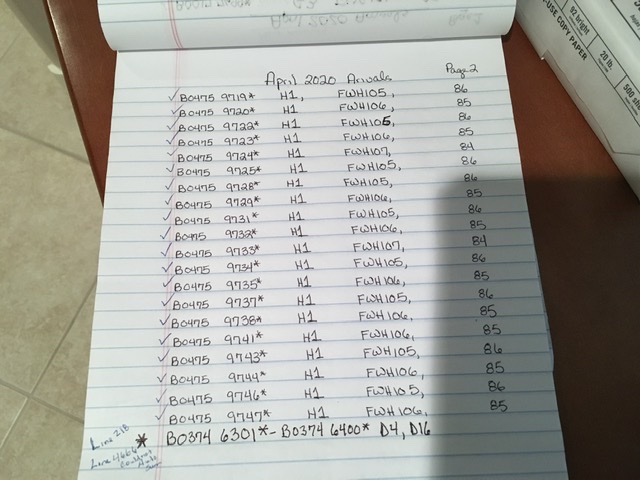 April 2020 Arrivals Page 2
✓ B0475 9719* H1, FWH105, 86
✓ B0475 9720* H1 FWH106, 85
✓ B0475 9722* H1 FWH105, 86
✓ B0475 9723* H1 FWH106, 85
✓ B0475 9724* H1 FWH107, 84
✓ B0475 9725* H1 FWH105, 86
✓ B0475 9728* H1 FWH105, 86
✓ B0475 9729* H1 FWH106, 85
✓ B0475 9731* H1 FWH105, 86
✓ B0475 9732* H1 FWH106, 85
✓ B0475 9733* H1 FWH107, 84
✓ B0475 9734* H1 FWH105, 86
✓ B0475 9735* H1 FWH106, 85
✓ B0475 9737* H1 FWH105, 86
✓ B0475 9738* H1 FWH106, 85
✓ B0475 9741* H1 FWH106, 85
✓ B0475 9743* H1 FWH105, 86
✓ B0475 9744* H1 FWH106, 85
✓ B0475 9746* H1 FWH105, 86
✓ B0475 9747* H1 FWH106, 85
* B0374 6301* - B0374 6400* D4, D16
Line 218
Line 4666
USE COPY PAPER
92 bright
20 lb.
500